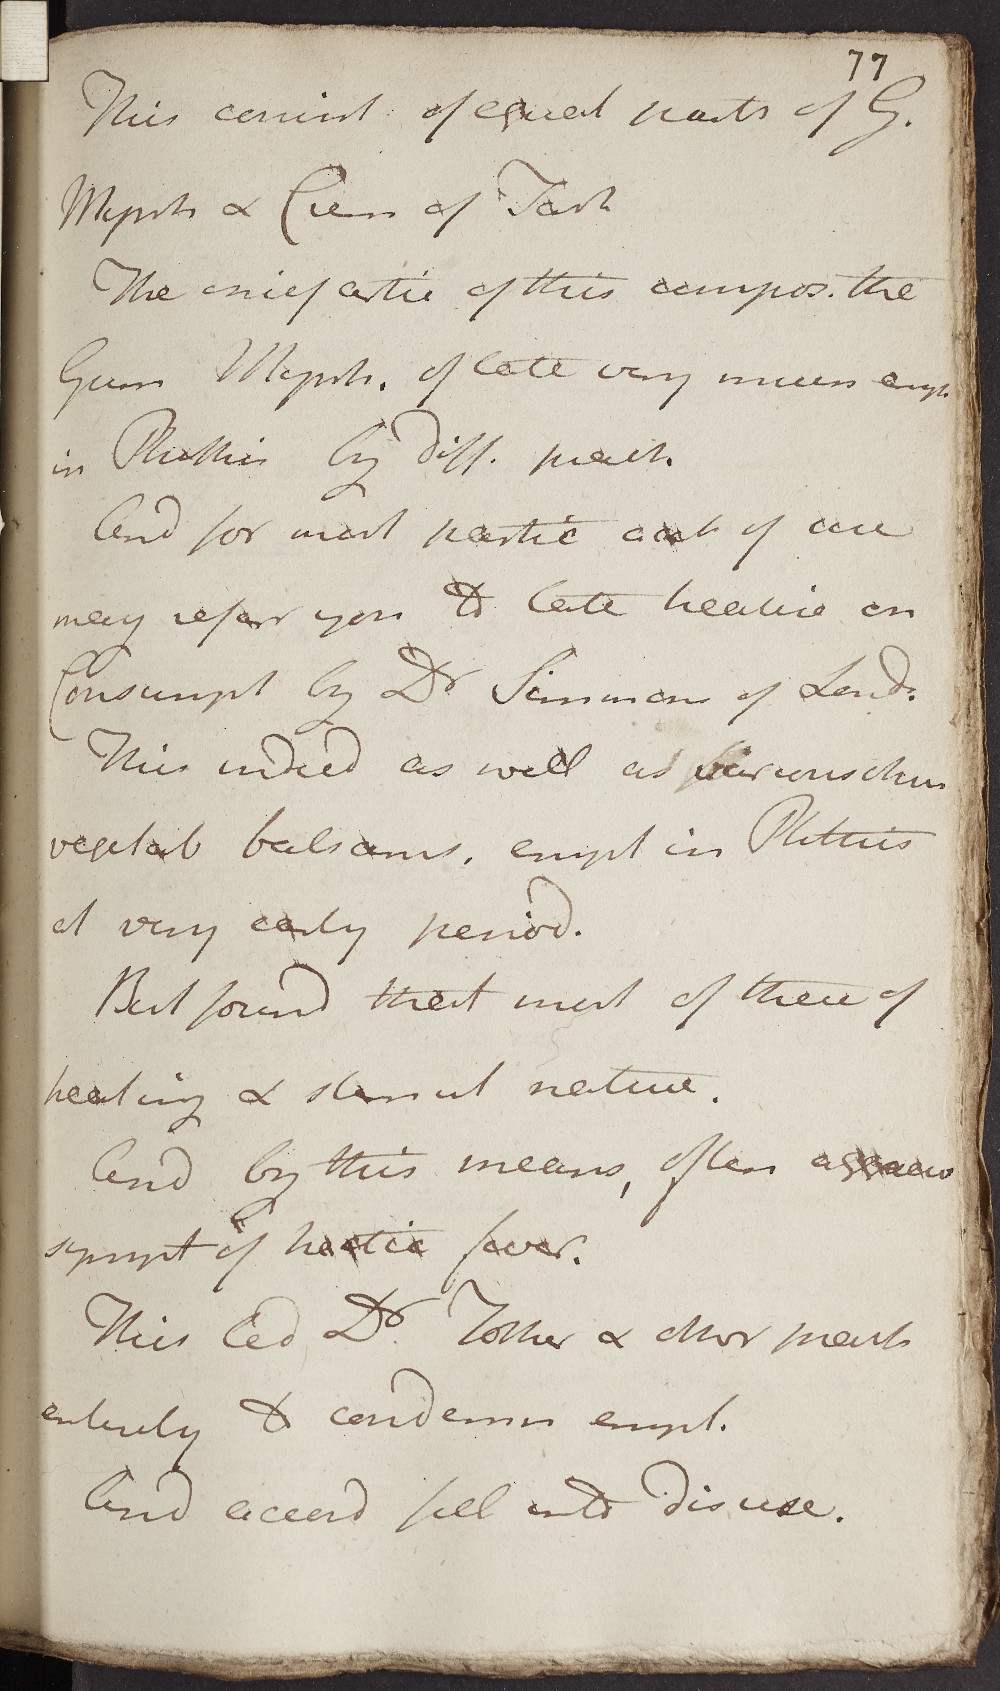 77
This consist of equal parts of G.
Myrrh & Crem of Tart
The chief artic of this compos. the
Gum Myrrh. of late very much empl
in Phthisis by diff. pract.
And for most partic acct of use
may refer you to late treatise on
Consumpt by Dr Simmons of Lond.
This indeed as well as various other
vegetab balsams. empl in Phthisis
at very early period.
But found that most of these of
heating & stimul nature.
And by this means, often aggrav
sympt of hectic fever.
This led Dr Fother & other pract
entirely to condemn empl.
And accord fell into disuse.